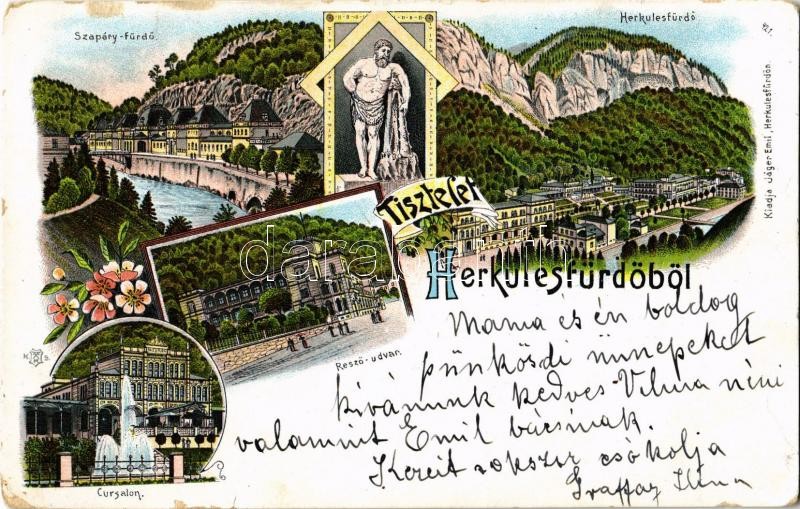 Szapáry-fürdő.
Herkulesfürdő
Tisztelet
Herkulesfürdőből
Kiadja Jäger Emil, Herkulesfürdőn.
Rezső-udvar.
Cursalon.
Mama és én boldog
pünkösdi ünnepeket
kívánunk kedves Vilma néni
valamint Emil bácsinak.
Kezeit sokszor csókolja
Ilona